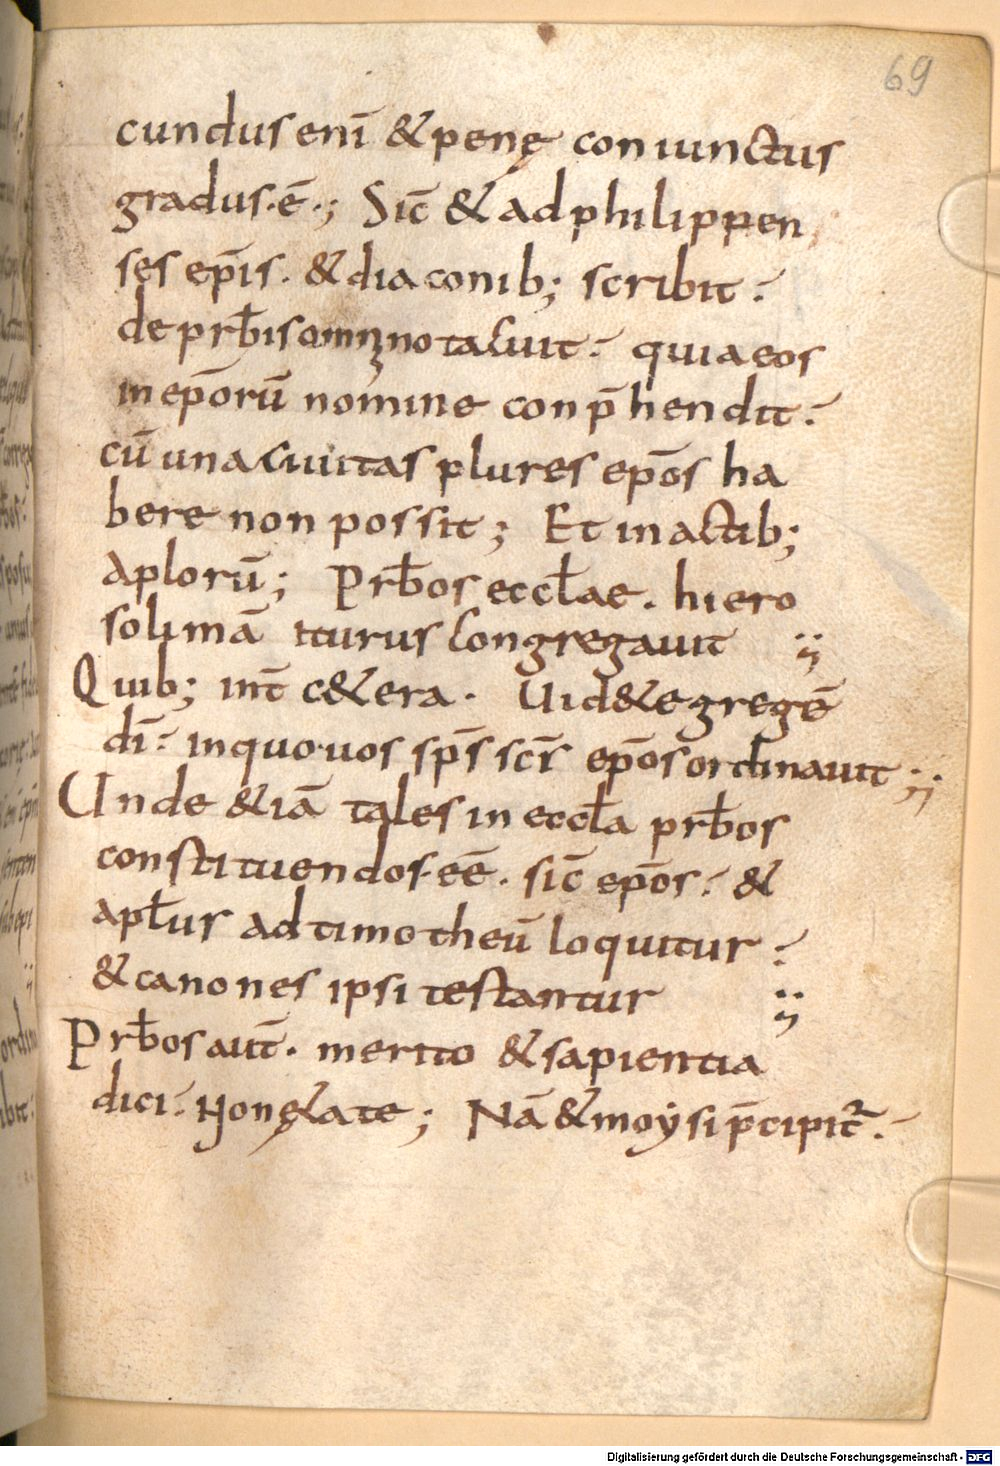 69
cundus enī &penę coniunctus
gradus·ē·; Sic̄ & ad philippen
ses ep̄is. & diaconib; scribit:
de prb̄is omnino tacuit: quia eos
in ep̄orū nomine conp̄hendit:
cū una ciuitas plures ep̄os ha
bere non possit; Et in actib;
aplorū; Prb̄os eccl̄ae. hiero
solimā iturus congregauit
Quib; int̄ c&era. Uid&e gregē
dī: inquo uos sp̄s sc̄s ep̄os ordinauit
Unde &iā tales in eccl̄a prb̄os
constituendos·eē. sic̄ ep̄os: &
apl̄us ad timotheū loquitur:
& canones ipsi testantur
Prb̄os aut̄. merito & sapientia
dici: Non ętate; Nā & moysi p̄cipit̄:
Digitalisierung gefördert durch die Deutsche Forschungsgemeinschaft - DFG